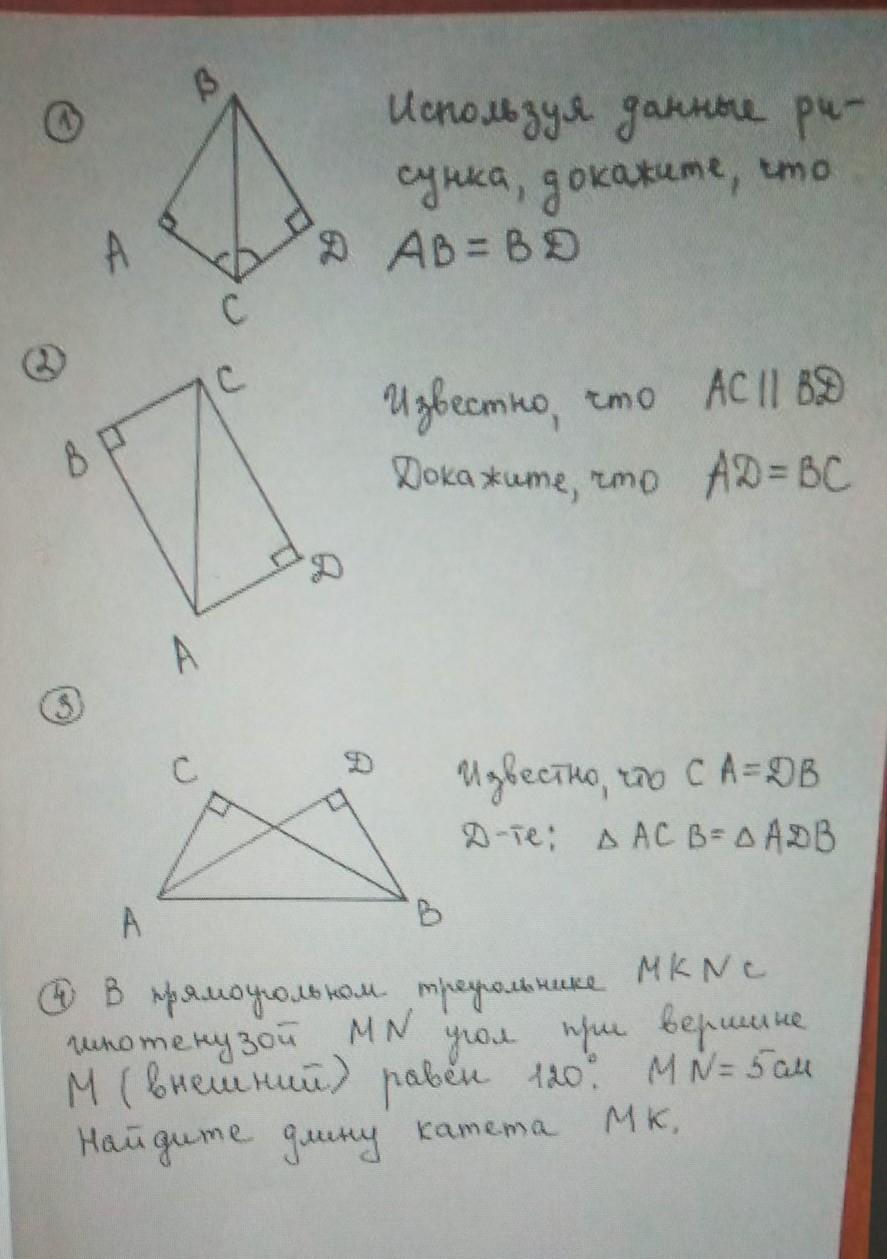 1
B
A
D
C
Используя данные ри-
сунка, докажите, что
AB = BD
2
C
B
D
A
Известно, что AC || BD
Докажите, что AD = BC
3
C
D
A
B
Известно, что CA = DB
Д-те: △ ACB = △ ADB
4 В прямоугольном треугольнике MKN с
гипотенузой MN угол при вершине
M (внешний) равен 120°. MN = 5 см
Найдите длину катета MK.